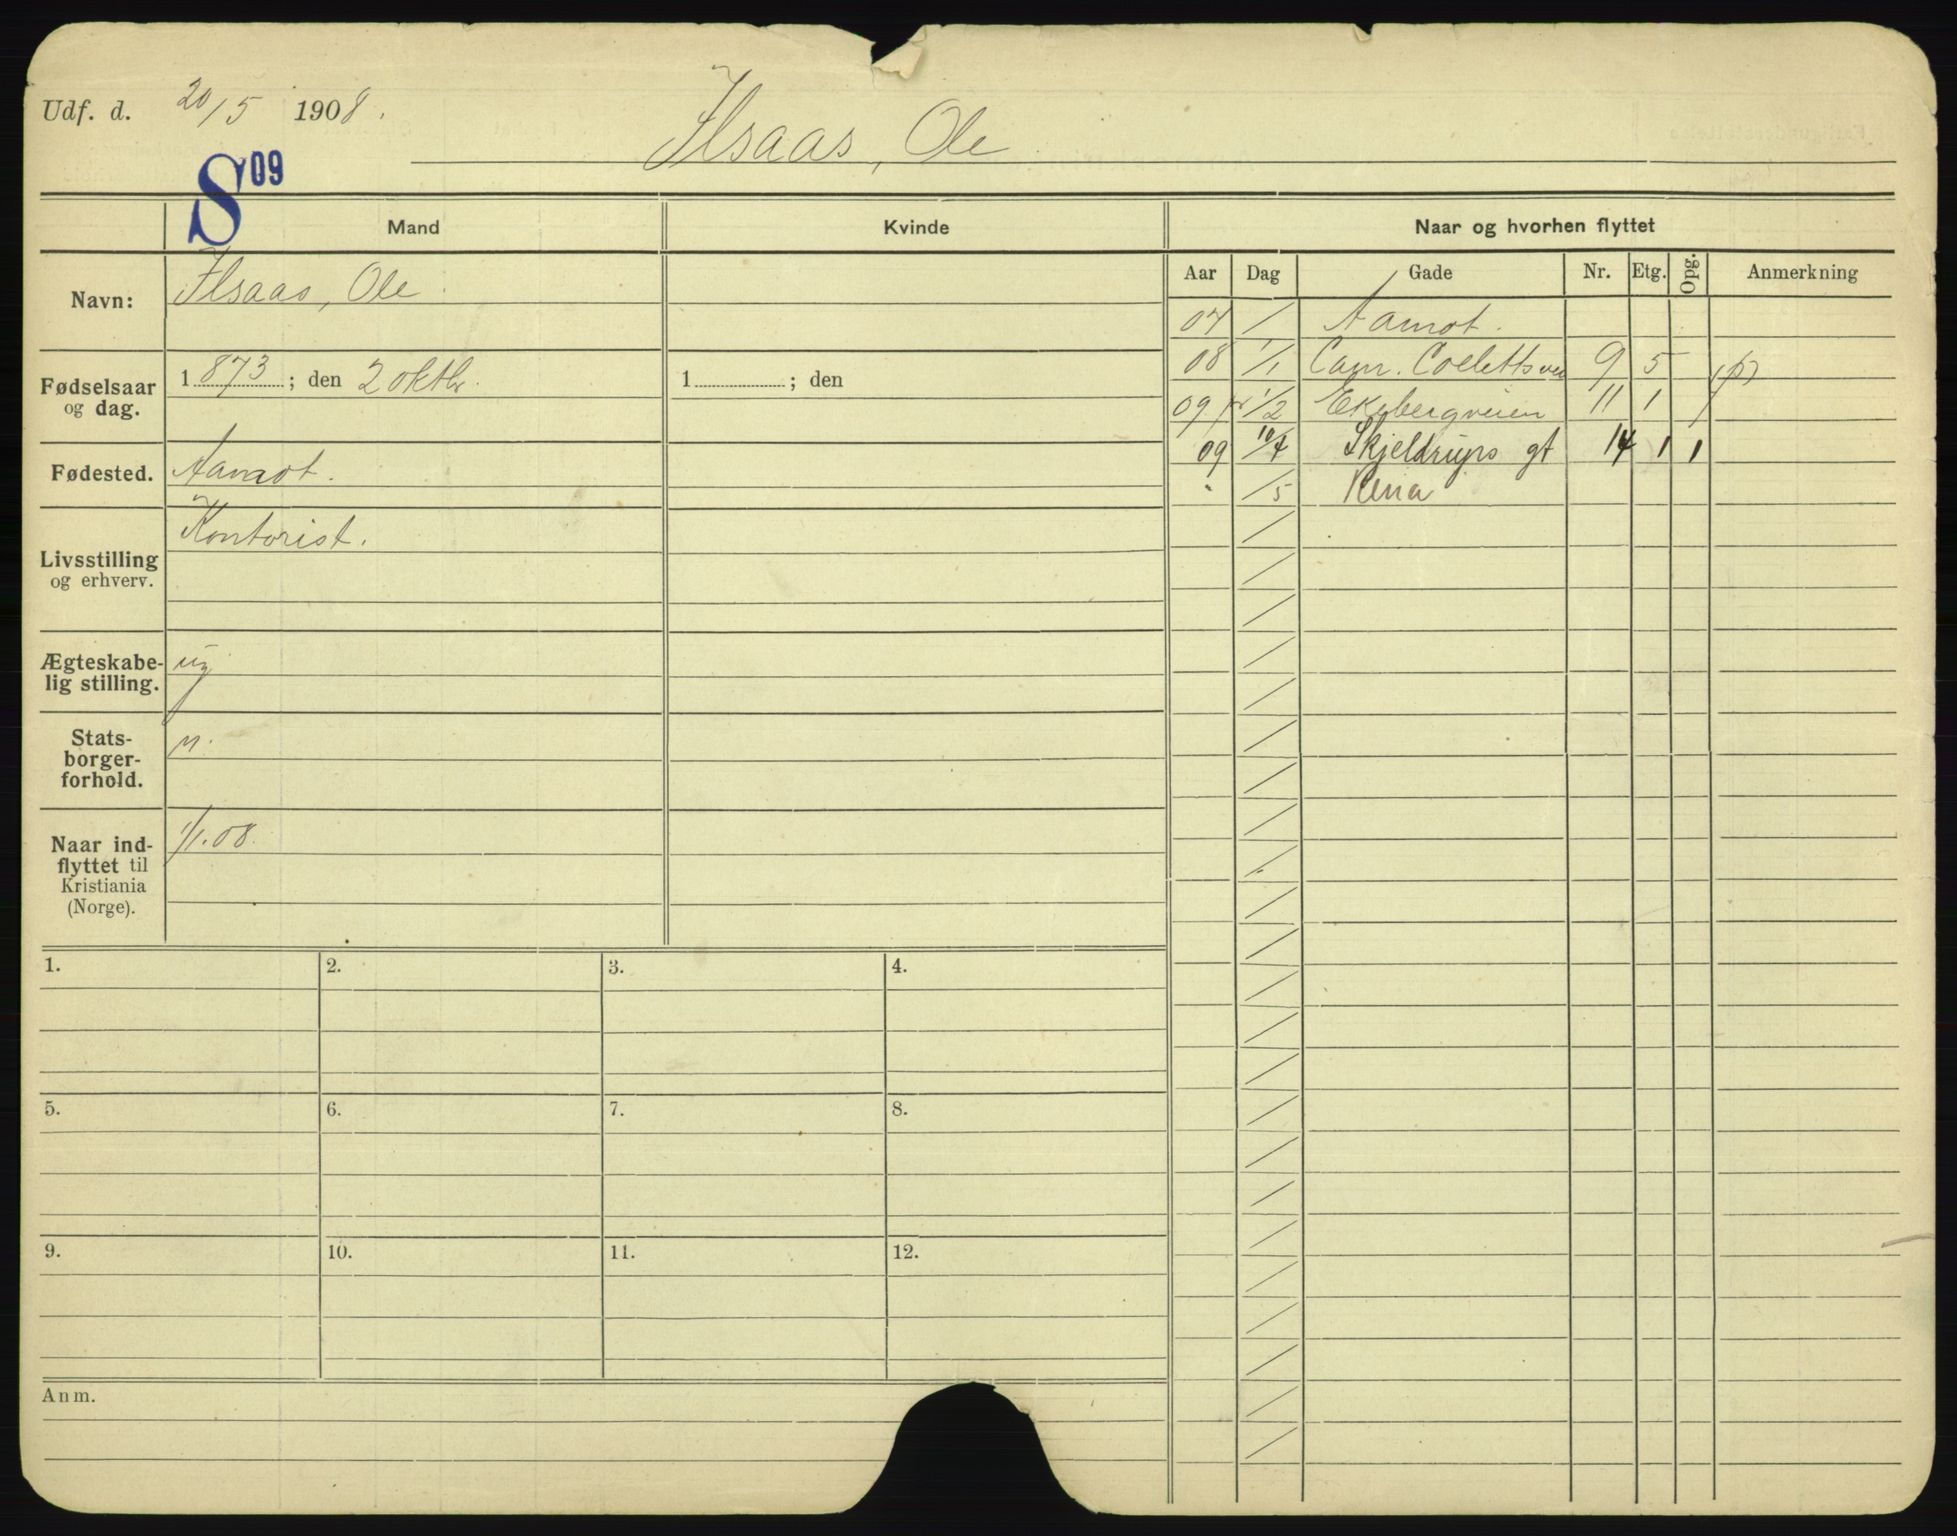 Udf. d. 20/5 1908.
Ilsaas, Ole
S 09
Mand Kvinde Naar og hvorhen flyttet
Aar Dag Gade Nr. Etg. Opg. Anmerkning
Navn: Ilsaas, Ole
Fødselsaar og dag. 1873; den 2 oktbr. 1 ; den
Fødested. Aamot.
Livsstilling og erhverv. Kontorist.
Ægteskabe-
lig stilling. ug.
Stats-
borger-
forhold. n.
Naar ind-
flyttet til
Kristiania
(Norge). 1/1.08.
07 / Aamot.
08 1/1 Cam. Colletts vei 9 5
09 1/2 Ekebergveien 11 1
09 10/4 Skjeldrups gt 14 1 1
" /5 Rena
1. 2. 3. 4.
5. 6. 7. 8.
9. 10. 11. 12.
Anm.